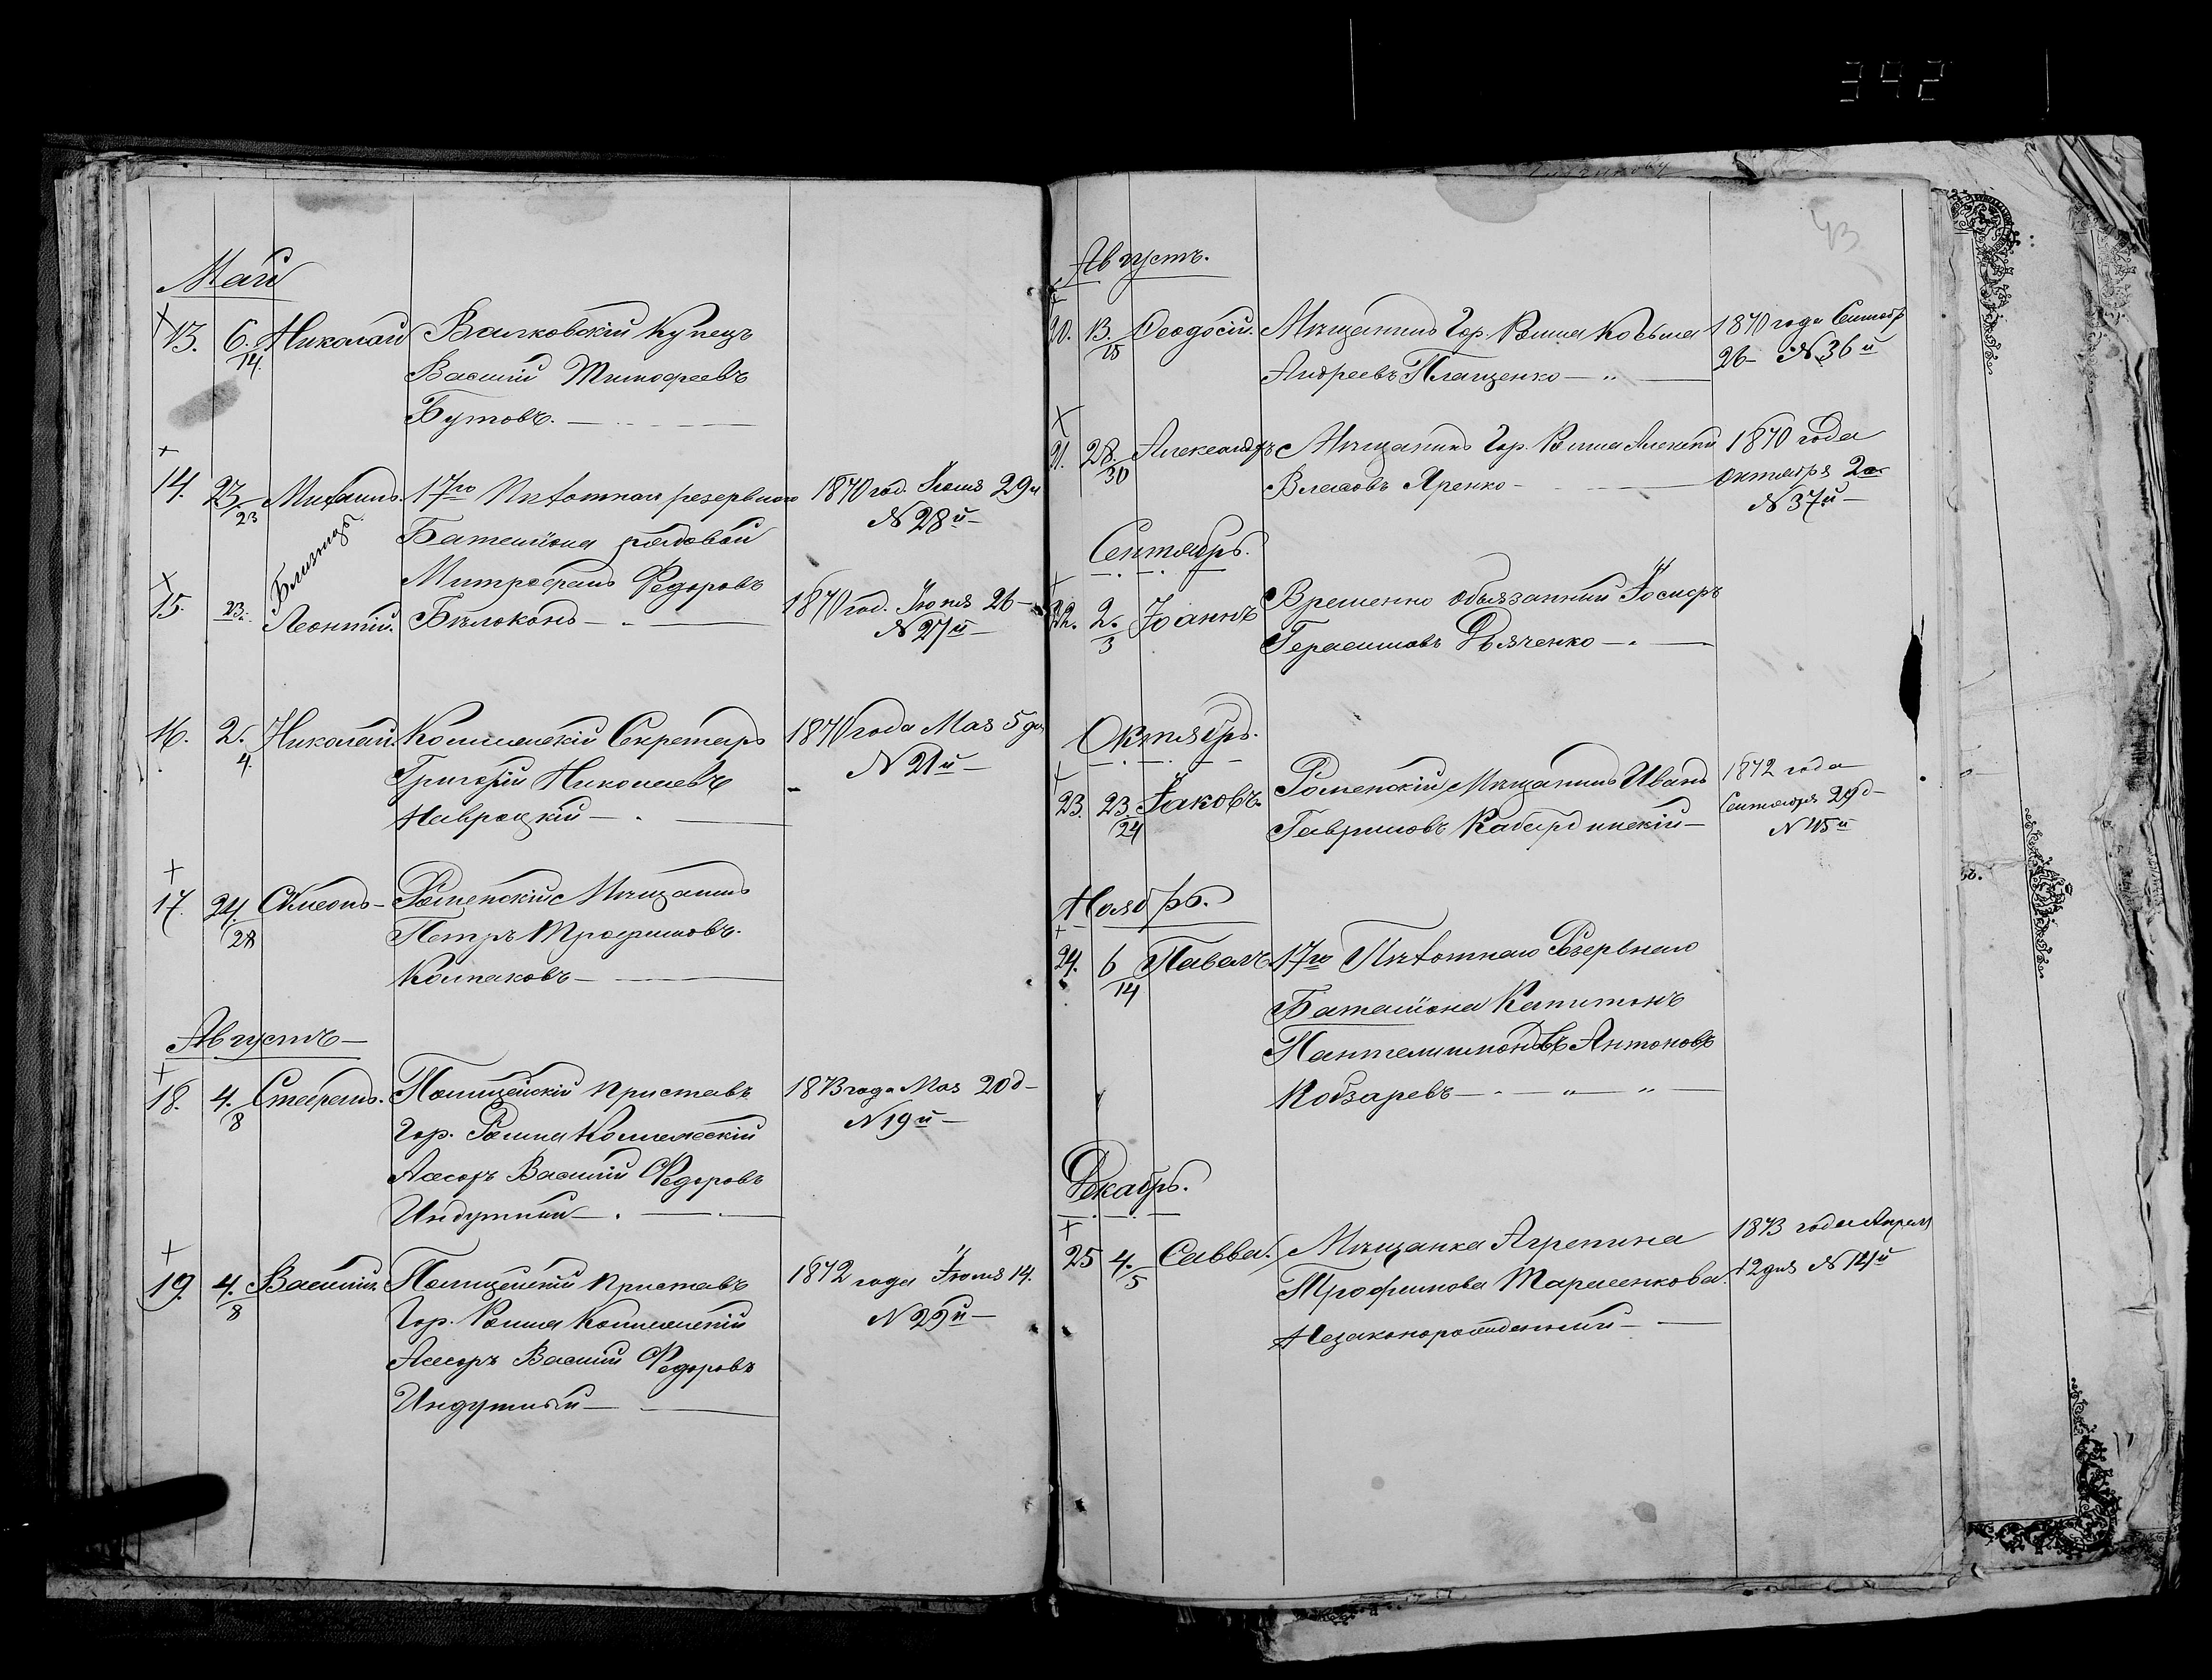 342
43
Май
13. 6/14. Николай Валковскій Купецъ
Василій Тимофеевъ
Бутовъ.
14. 23/23 Михаилъ. 17го Пѣхотнаго резервнаго 1870 год. Іюня 29
Баталіона рядовой № 28й
Близнецы
Митрофанъ Федоровъ
15. 23. Леонтій. Бѣлоконь 1870 год. Іюня 26
№ 27й
16. 2./4. Николай. Коллежскій Секретарь 1870 года Мая 5 дня
Григорій Николаевъ № 21й
Навроцкій
17. 24/28 Симеонъ Роменскій Мѣщанинъ
Петръ Трофимовъ.
Колпаковъ
Августъ
18. 4./8 Стефанъ. Полицейскій Приставъ 1873 года Мая 20 д
Гор. Ромна Коллежскій № 19й
Асесоръ Василій Федоровъ
Индутный
19. 4./8 Василій. Полицейскій Приставъ 1872 года Іюня 14.
Гор. Ромна Коллежскій № 29й
Асесоръ Василій Федоровъ
Индутный
Августъ.
20. 13./15 Феодосій. Мѣщанинъ Гор. Ромна Косьма 1870 года Сентябр
Андреевъ Плащенко 26 № 36й
21. 28./30 Александръ Мѣщанинъ Гор. Ромна Алексѣй 1870 года
Власовъ Яренко Октября 2
№ 37й
Сентябрь.
22. 2./3 Іоаннъ Временно обязанный Іосифъ
Герасимовъ Дьяченко
Октябрь.
23. 23/24 Іаковъ. Роменскій Мѣщанинъ Иванъ 1872 года
Гавриловъ Кабардинскій Сентября 29 д
№ 45й
Ноябрь.
24. 6/14 Павелъ 17го Пѣхотнаго Резервнаго
Баталіона Капитонъ
Пантелимоновъ Антоновъ
Кобзаревъ
Декабрь.
25 4./5 Савва. Мѣщанка Агрепина 1873 года Апреля
Трофимова Тарасенкова. 12 дня № 14й
Незаконорожденный